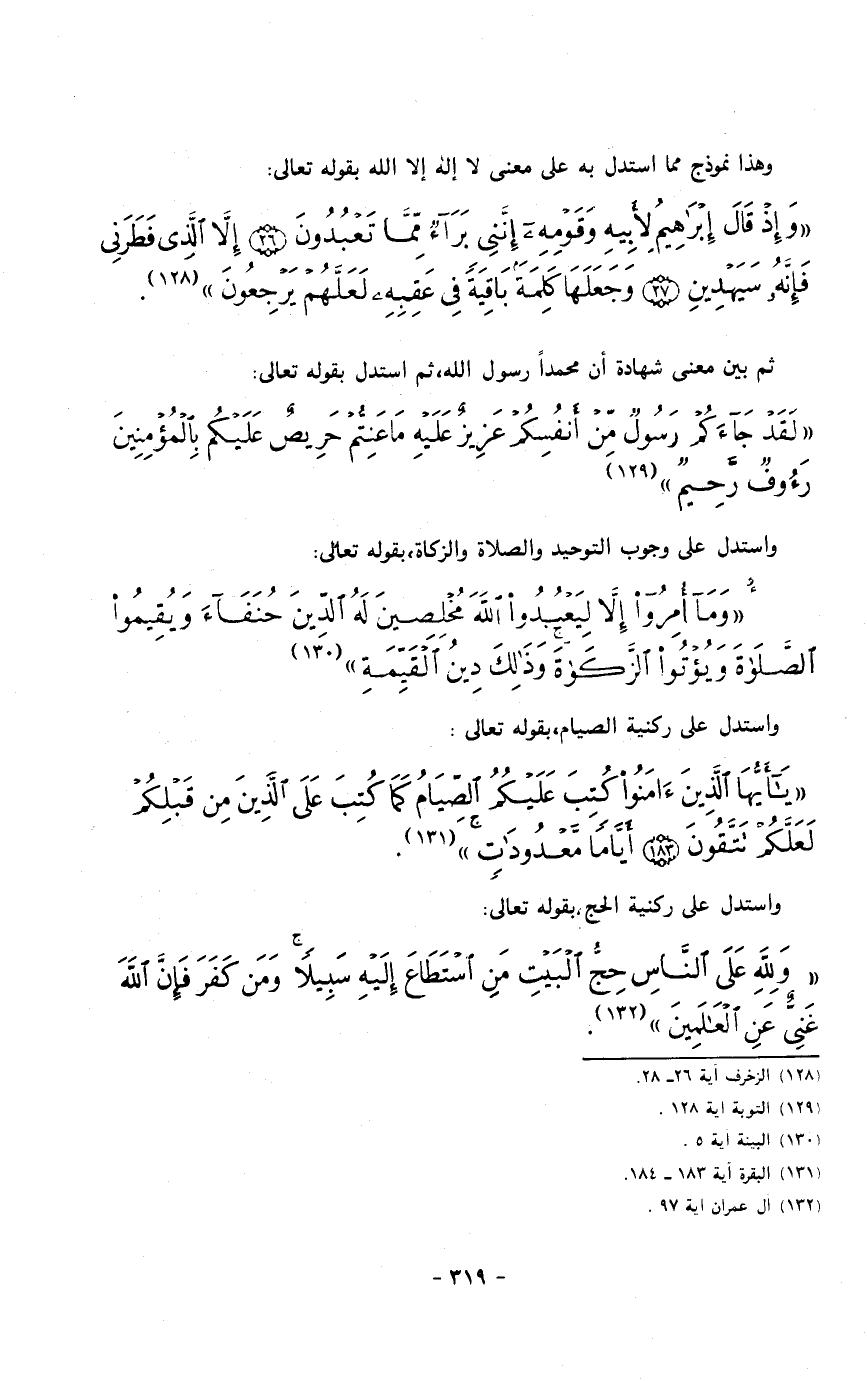 وهذا نموذج مما استدل به على معنى لا إله إلا الله بقوله تعالى:
«وَإِذْ قَالَ إِبْرَٰهِيمُ لِأَبِيهِ وَقَوْمِهِۦٓ إِنَّنِى بَرَآءٌ مِّمَّا تَعْبُدُونَ ﴿٢٦﴾ إِلَّا ٱلَّذِى فَطَرَنِى
فَإِنَّهُۥ سَيَهْدِينِ ﴿٢٧﴾ وَجَعَلَهَا كَلِمَةًۢ بَاقِيَةً فِى عَقِبِهِۦ لَعَلَّهُمْ يَرْجِعُونَ»(١٢٨).
ثم بين معنى شهادة أن محمداً رسول الله،ثم استدل بقوله تعالى:
«لَقَدْ جَآءَكُمْ رَسُولٌ مِّنْ أَنفُسِكُمْ عَزِيزٌ عَلَيْهِ مَاعَنِتُّمْ حَرِيصٌ عَلَيْكُم بِٱلْمُؤْمِنِينَ
رَءُوفٌ رَّحِيمٌ»(١٢٩)
واستدل على وجوب التوحيد والصلاة والزكاة،بقوله تعالى:
«وَمَآ أُمِرُوٓا۟ إِلَّا لِيَعْبُدُوا۟ ٱللَّهَ مُخْلِصِينَ لَهُ ٱلدِّينَ حُنَفَآءَ وَيُقِيمُوا۟
ٱلصَّلَوٰةَ وَيُؤْتُوا۟ ٱلزَّكَوٰةَۚ وَذَٰلِكَ دِينُ ٱلْقَيِّمَةِ»(١٣٠)
واستدل على ركنية الصيام،بقوله تعالى :
«يَـٰٓأَيُّهَا ٱلَّذِينَ ءَامَنُوا۟ كُتِبَ عَلَيْكُمُ ٱلصِّيَامُ كَمَا كُتِبَ عَلَى ٱلَّذِينَ مِن قَبْلِكُمْ
لَعَلَّكُمْ تَتَّقُونَ ﴿١٨٣﴾ أَيَّامًا مَّعْدُودَٰتٍۚ»(١٣١).
واستدل على ركنية الحج،بقوله تعالى:
« وَلِلَّهِ عَلَى ٱلنَّاسِ حِجُّ ٱلْبَيْتِ مَنِ ٱسْتَطَاعَ إِلَيْهِ سَبِيلًاۚ وَمَن كَفَرَ فَإِنَّ ٱللَّهَ
غَنِىٌّ عَنِ ٱلْعَـٰلَمِينَ»(١٣٢).
(١٢٨) الزخرف آية ٢٦ـ ٢٨.
(١٢٩) التوبة اية ١٢٨ .
(١٣٠) البينة اية ٥ .
(١٣١) البقرة آية ١٨٣ ـ ١٨٤.
(١٣٢) آل عمران اية ٩٧ .
- ٣١٩ -